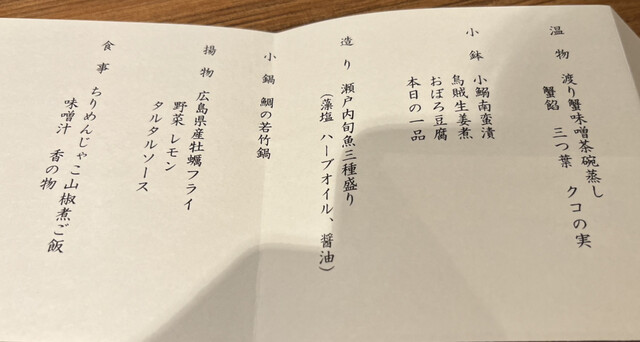 温物 渡り蟹味噌茶碗蒸し
蟹餡 三つ葉 クコの実
小鉢 小鰯南蛮漬
烏賊生姜煮
おぼろ豆腐
本日の一品
造り 瀬戸内旬魚三種盛り
（藻塩 ハーブオイル、醤油）
小鍋 鯛の若竹鍋
揚物 広島県産牡蠣フライ
野菜 レモン
タルタルソース
食事 ちりめんじゃこ山椒煮ご飯
味噌汁 香の物